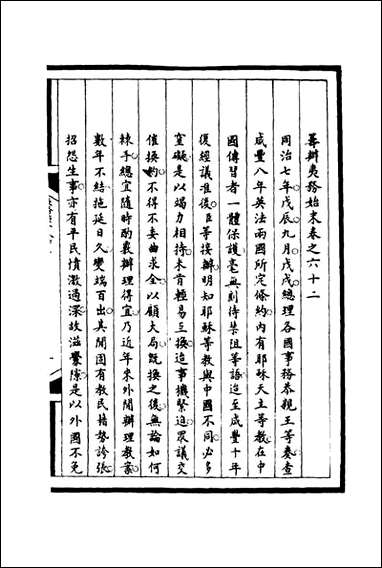 籌辦夷務始末卷之六十二
同治七年戊辰九月戊戌總理各國事務恭親王等奏查
咸豐八年英法兩國所定條約內有耶穌天主等教在中
國傳習者一體保護毫無刻待禁阻等語迨至咸豐十年
復經議准後臣等接辦明知耶穌等教與中國不同必多
窒礙是以竭力相持未肯輕易互換迨事機緊迫眾議交
催換約不得不委曲求全以顧大局既換之後無論如何
棘手總宜隨時酌衷辦理得宜乃近年來外間辦理教案
數年不結拖延日久變端百出其間固有教民恃勢誇張
招怨生事亦有平民憤激過深故滋釁隙是以外國不免